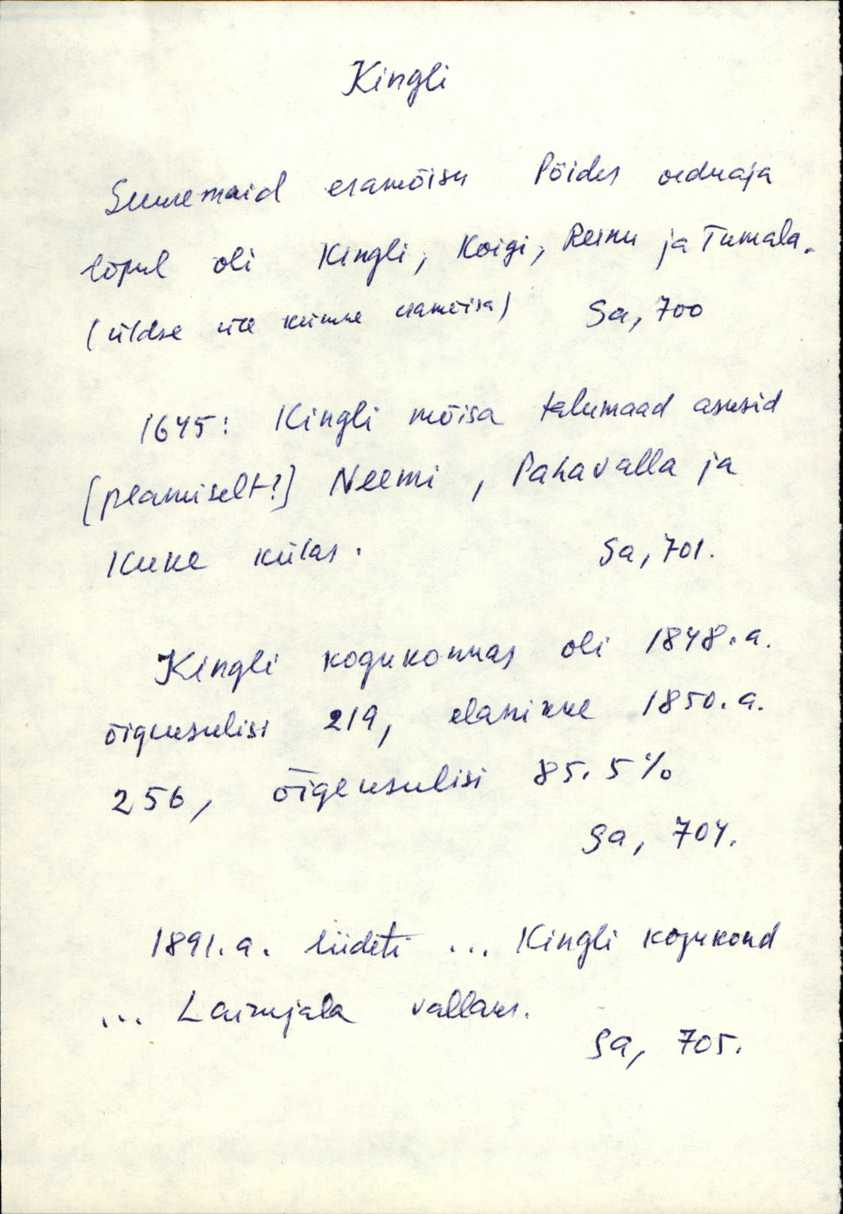 Kingli
Suuremaid eramõisu Pöides orduaja
lõpul oli Kingli, Koigi, Reinu ja Tumala.
(üldse üle kümne eramõisa) Sa, 700
1645: Kingli mõisa talumaad asusid
[peamiselt?] Neemi, Pahavalla ja
Kuke külas. Sa, 701.
Kingli kogukonnas oli 1848.a.
õigeusulisi 219, elanikke 1850.a.
256, õigeusulisi 85.5%
Sa, 704.
1891.a. liideti ... Kingli kogukond
... Laimjala vallaks.
Sa, 705.